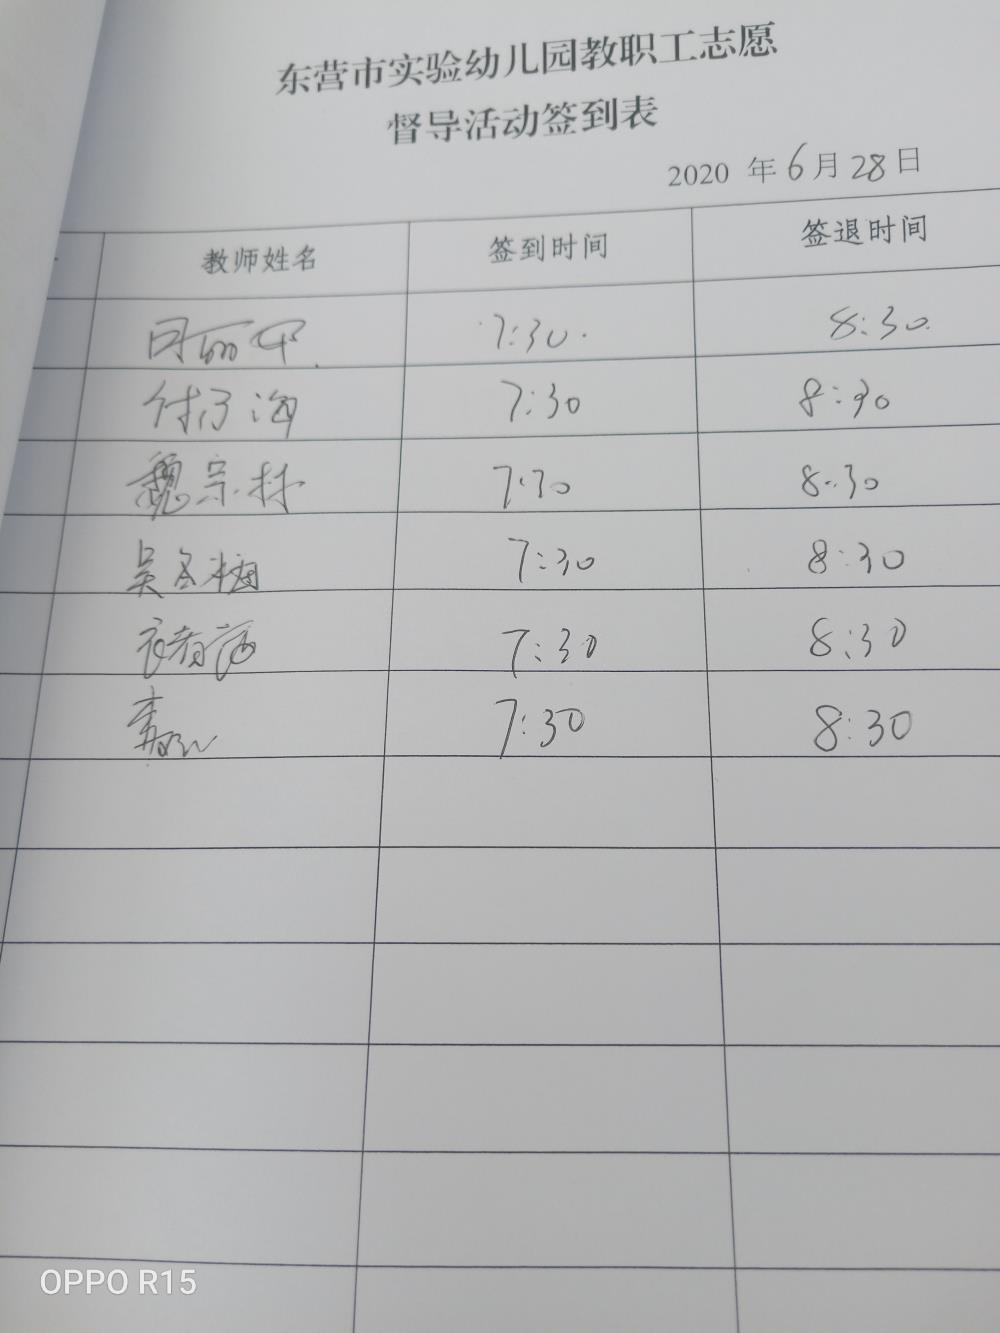 东营市实验幼儿园教职工志愿
督导活动签到表
2020 年 6 月 28 日
教师姓名 签到时间 签退时间
7:30. 8:30.
7:30 8:30
魏宗林 7:30 8:30
吴 7:30 8:30
7:30 8:30
7:30 8:30
OPPO R15